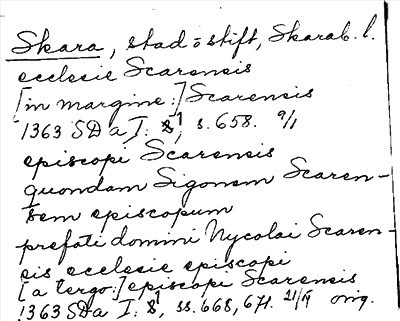 Skara, stad o stift, Skarab. l.
ecclesie Scarensis
[in margine:] Scarensis
1363 SD a I: 8¹, s. 658. 9/1
episcopi Scarensis
quondam Sigonem Scaren-
sem episcopum
prefati domini Nycolai Scaren-
sis ecclesie episcopi
[a tergo:] episcopi Scarensis
1363 SD a I: 8¹, ss. 668, 671. orig.